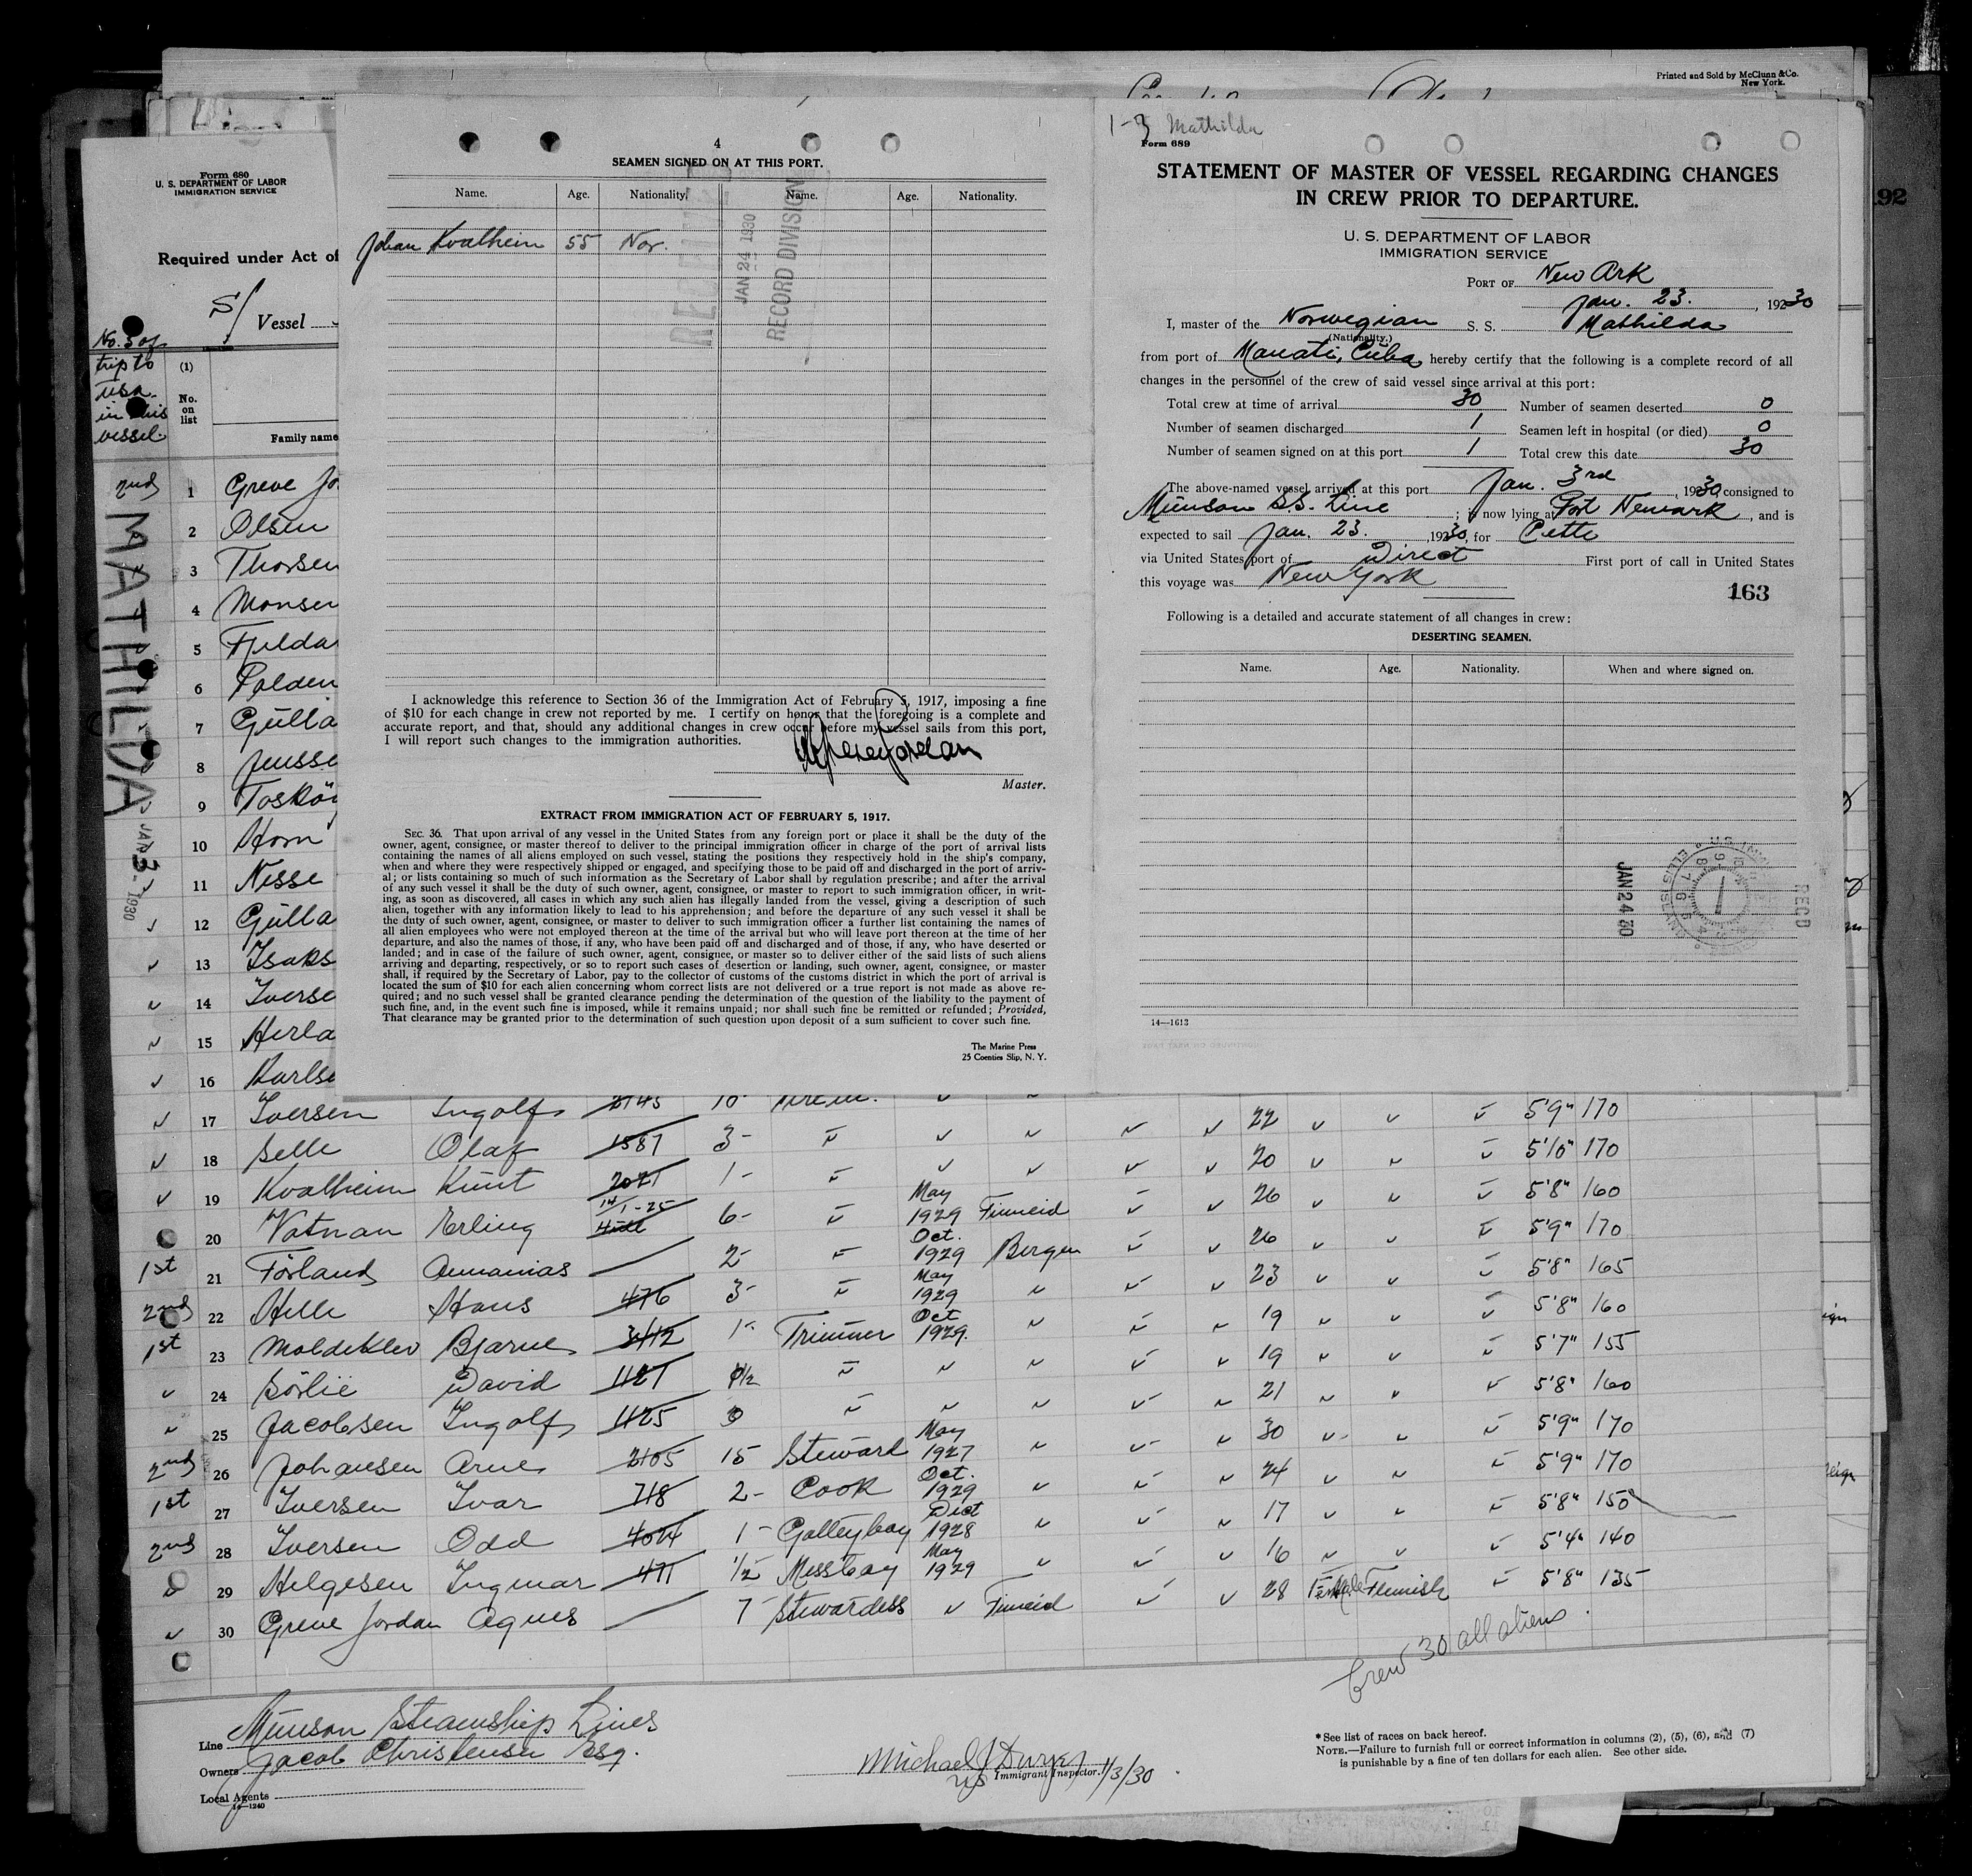 Printed and Sold by McClunn & Co.
New York.
192
Form 680
U. S. DEPARTMENT OF LABOR
IMMIGRATION SERVICE
Required under Act of
S/ Vessel
No. 3 of
trip to
USA
in this
vessel.
(1)
No.
on
list
Family name
MATHILDA
JAN 3 - 1930
2nd 1 Greve Jo
2 Olsen
3 Thorsen
4 Monsen
5 Fjelda
6 Polden
7 Gulla
8 Jensse
9 Toskö
10 Horn
11 Nesse
12 Gulla
13 Isaks
14 Iverse
15 Herla
16 Karlse
4
SEAMEN SIGNED ON AT THIS PORT.
Name. Age. Nationality. Name. Age. Nationality.
Johan Kvalheim 55 Nor.
JAN 24 1930
RECORD DIVISION
I acknowledge this reference to Section 36 of the Immigration Act of February 5, 1917, imposing a fine
of $10 for each change in crew not reported by me. I certify on honor that the foregoing is a complete and
accurate report, and that, should any additional changes in crew occur before my vessel sails from this port,
I will report such changes to the immigration authorities.
Master.
EXTRACT FROM IMMIGRATION ACT OF FEBRUARY 5, 1917.
SEC. 36. That upon arrival of any vessel in the United States from any foreign port or place it shall be the duty of the
owner, agent, consignee, or master thereof to deliver to the principal immigration officer in charge of the port of arrival lists
containing the names of all aliens employed on such vessel, stating the positions they respectively hold in the ship's company,
when and where they were respectively shipped or engaged, and specifying those to be paid off and discharged in the port of arriv-
al; or lists containing so much of such information as the Secretary of Labor shall by regulation prescribe; and after the arrival
of any such vessel it shall be the duty of such owner, agent, consignee, or master to report to such immigration officer, in writ-
ing, as soon as discovered, all cases in which any such alien has illegally landed from the vessel, giving a description of such
alien, together with any information likely to lead to his apprehension; and before the departure of any such vessel it shall be
the duty of such owner, agent, consignee, or master to deliver to such immigration officer a further list containing the names of
all alien employees who were not employed thereon at the time of the arrival but who will leave port thereon at the time of her
departure, and also the names of those, if any, who have been paid off and discharged and of those, if any, who have deserted or
landed; and in case of the failure of such owner, agent, consignee, or master so to deliver either of the said lists of such aliens
arriving and departing, respectively, or so to report such cases of desertion or landing, such owner, agent, consignee, or master
shall, if required by the Secretary of Labor, pay to the collector of customs of the customs district in which the port of arrival is
located the sum of $10 for each alien concerning whom correct lists are not delivered or a true report is not made as above re-
quired; and no such vessel shall be granted clearance pending the determination of the question of the liability to the payment of
such fine, and, in the event such fine is imposed, while it remains unpaid; nor shall such fine be remitted or refunded; Provided,
That clearance may be granted prior to the determination of such question upon deposit of a sum sufficient to cover such fine.
The Marine Press
25 Coenties Slip, N. Y.
1-3 Mathilda
Form 689
STATEMENT OF MASTER OF VESSEL REGARDING CHANGES
IN CREW PRIOR TO DEPARTURE.
U. S. DEPARTMENT OF LABOR
IMMIGRATION SERVICE
PORT OF New Ark
Jan. 23. , 1930
I, master of the Norwegian S. S. Mathilda
(Nationality.)
from port of Manati, Cuba hereby certify that the following is a complete record of all
changes in the personnel of the crew of said vessel since arrival at this port:
Total crew at time of arrival 30 Number of seamen deserted 0
Number of seamen discharged 1 Seamen left in hospital (or died) 0
Number of seamen signed on at this port 1 Total crew this date 30
The above-named vessel arrived at this port Jan. 3rd , 1930, consigned to
Munson S.S. Line ; is now lying at Port Newark , and is
expected to sail Jan. 23. , 1930, for Cette
via United States port of Direct First port of call in United States
this voyage was New York
163
Following is a detailed and accurate statement of all changes in crew:
DESERTING SEAMEN.
Name. Age. Nationality. When and where signed on.
JAN 24 30
REC'D
14—1613
17 Iversen Ingolf 2145 10- 22 5'9" 170
18 Selle Olaf 1587 3- 20 5'10" 170
19 Kvalheim Knut 2021 1- May 26 5'8" 160
20 Vatnan Erling 6- 1929 Finneid 26 5'9" 170
1st 21 Förland Annanias 2- Oct. 1929 Bergen 23 5'8" 165
2nd 22 Helle Hans 476 3- May 1929 19 5'8" 160
1st 23 Moldeklev Bjarne 3412 1- Trimmer Oct 1929. 19 5'7" 155
24 Sörlie David 1121 1/2 21 5'8" 160
25 Jacobsen Ingolf 1125 30 5'9" 170
2nd 26 Johansen Arne 2105 15 Steward May 1927 24 5'9" 170
1st 27 Iversen Ivar 718 2- Cook Oct. 1929 17 5'8" 150
2nd 28 Iversen Odd 4024 1- Galleyboy Dect 1928 16 5'4" 140
29 Helgesen Ingmar 471 1/2 Messboy May 1929 28 Female Flemish 5'8" 135
30 Greve Jordan Agnes 7 Stewardess Finneid
Crew 30 all aliens.
Line Munson Steamship Lines
Owners Jacob Christensen Esq.
Local Agents
14—1240
Michael J Dwyer
US Immigrant Inspector. 1/3/30
* See list of races on back hereof.
NOTE.—Failure to furnish full or correct information in columns (2), (5), (6), and (7)
is punishable by a fine of ten dollars for each alien. See other side.